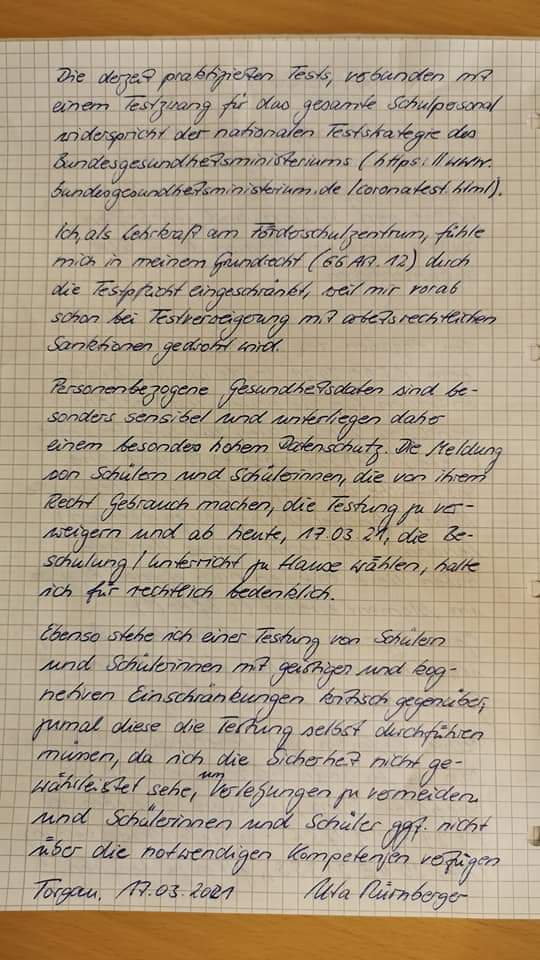 Die derzeit praktizierten Tests, verbunden mit
einem Testzwang für das gesamte Schulpersonal
widerspricht der nationalen Teststrategie des
Bundesgesundheitsministeriums (https://www.
bundesgesundheitsministerium.de/coronatest.html).
Ich, als Lehrkraft am Förderschulzentrum, fühle
mich in meinem Grundrecht (GG Art. 12) durch
die Testpflicht eingeschränkt, weil mir vorab
schon bei Testverweigerung mit arbeitsrechtlichen
Sanktionen gedroht wird.
Personenbezogene Gesundheitsdaten sind be-
sonders sensibel und unterliegen daher
einem besonders hohem Datenschutz. Die Meldung
von Schülern und Schülerinnen, die von ihrem
Recht Gebrauch machen, die Testung zu ver-
weigern und ab heute, 17.03.21, die Be-
schulung/Unterricht zu Hause wählen, halte
ich für rechtlich bedenklich.
Ebenso stehe ich einer Testung von Schülern
und Schülerinnen mit geistiger und kog-
nitiven Einschränkungen kritisch gegenüber,
zumal diese die Testung selbst durchführen
müssen, da ich die Sicherheit nicht ge-
währleistet sehe, um Verletzungen zu vermeiden
und Schülerinnen und Schüler ggf. nicht
über die notwendigen Kompetenzen verfügen
Torgau, 17.03.2021 Uta Nürnberger